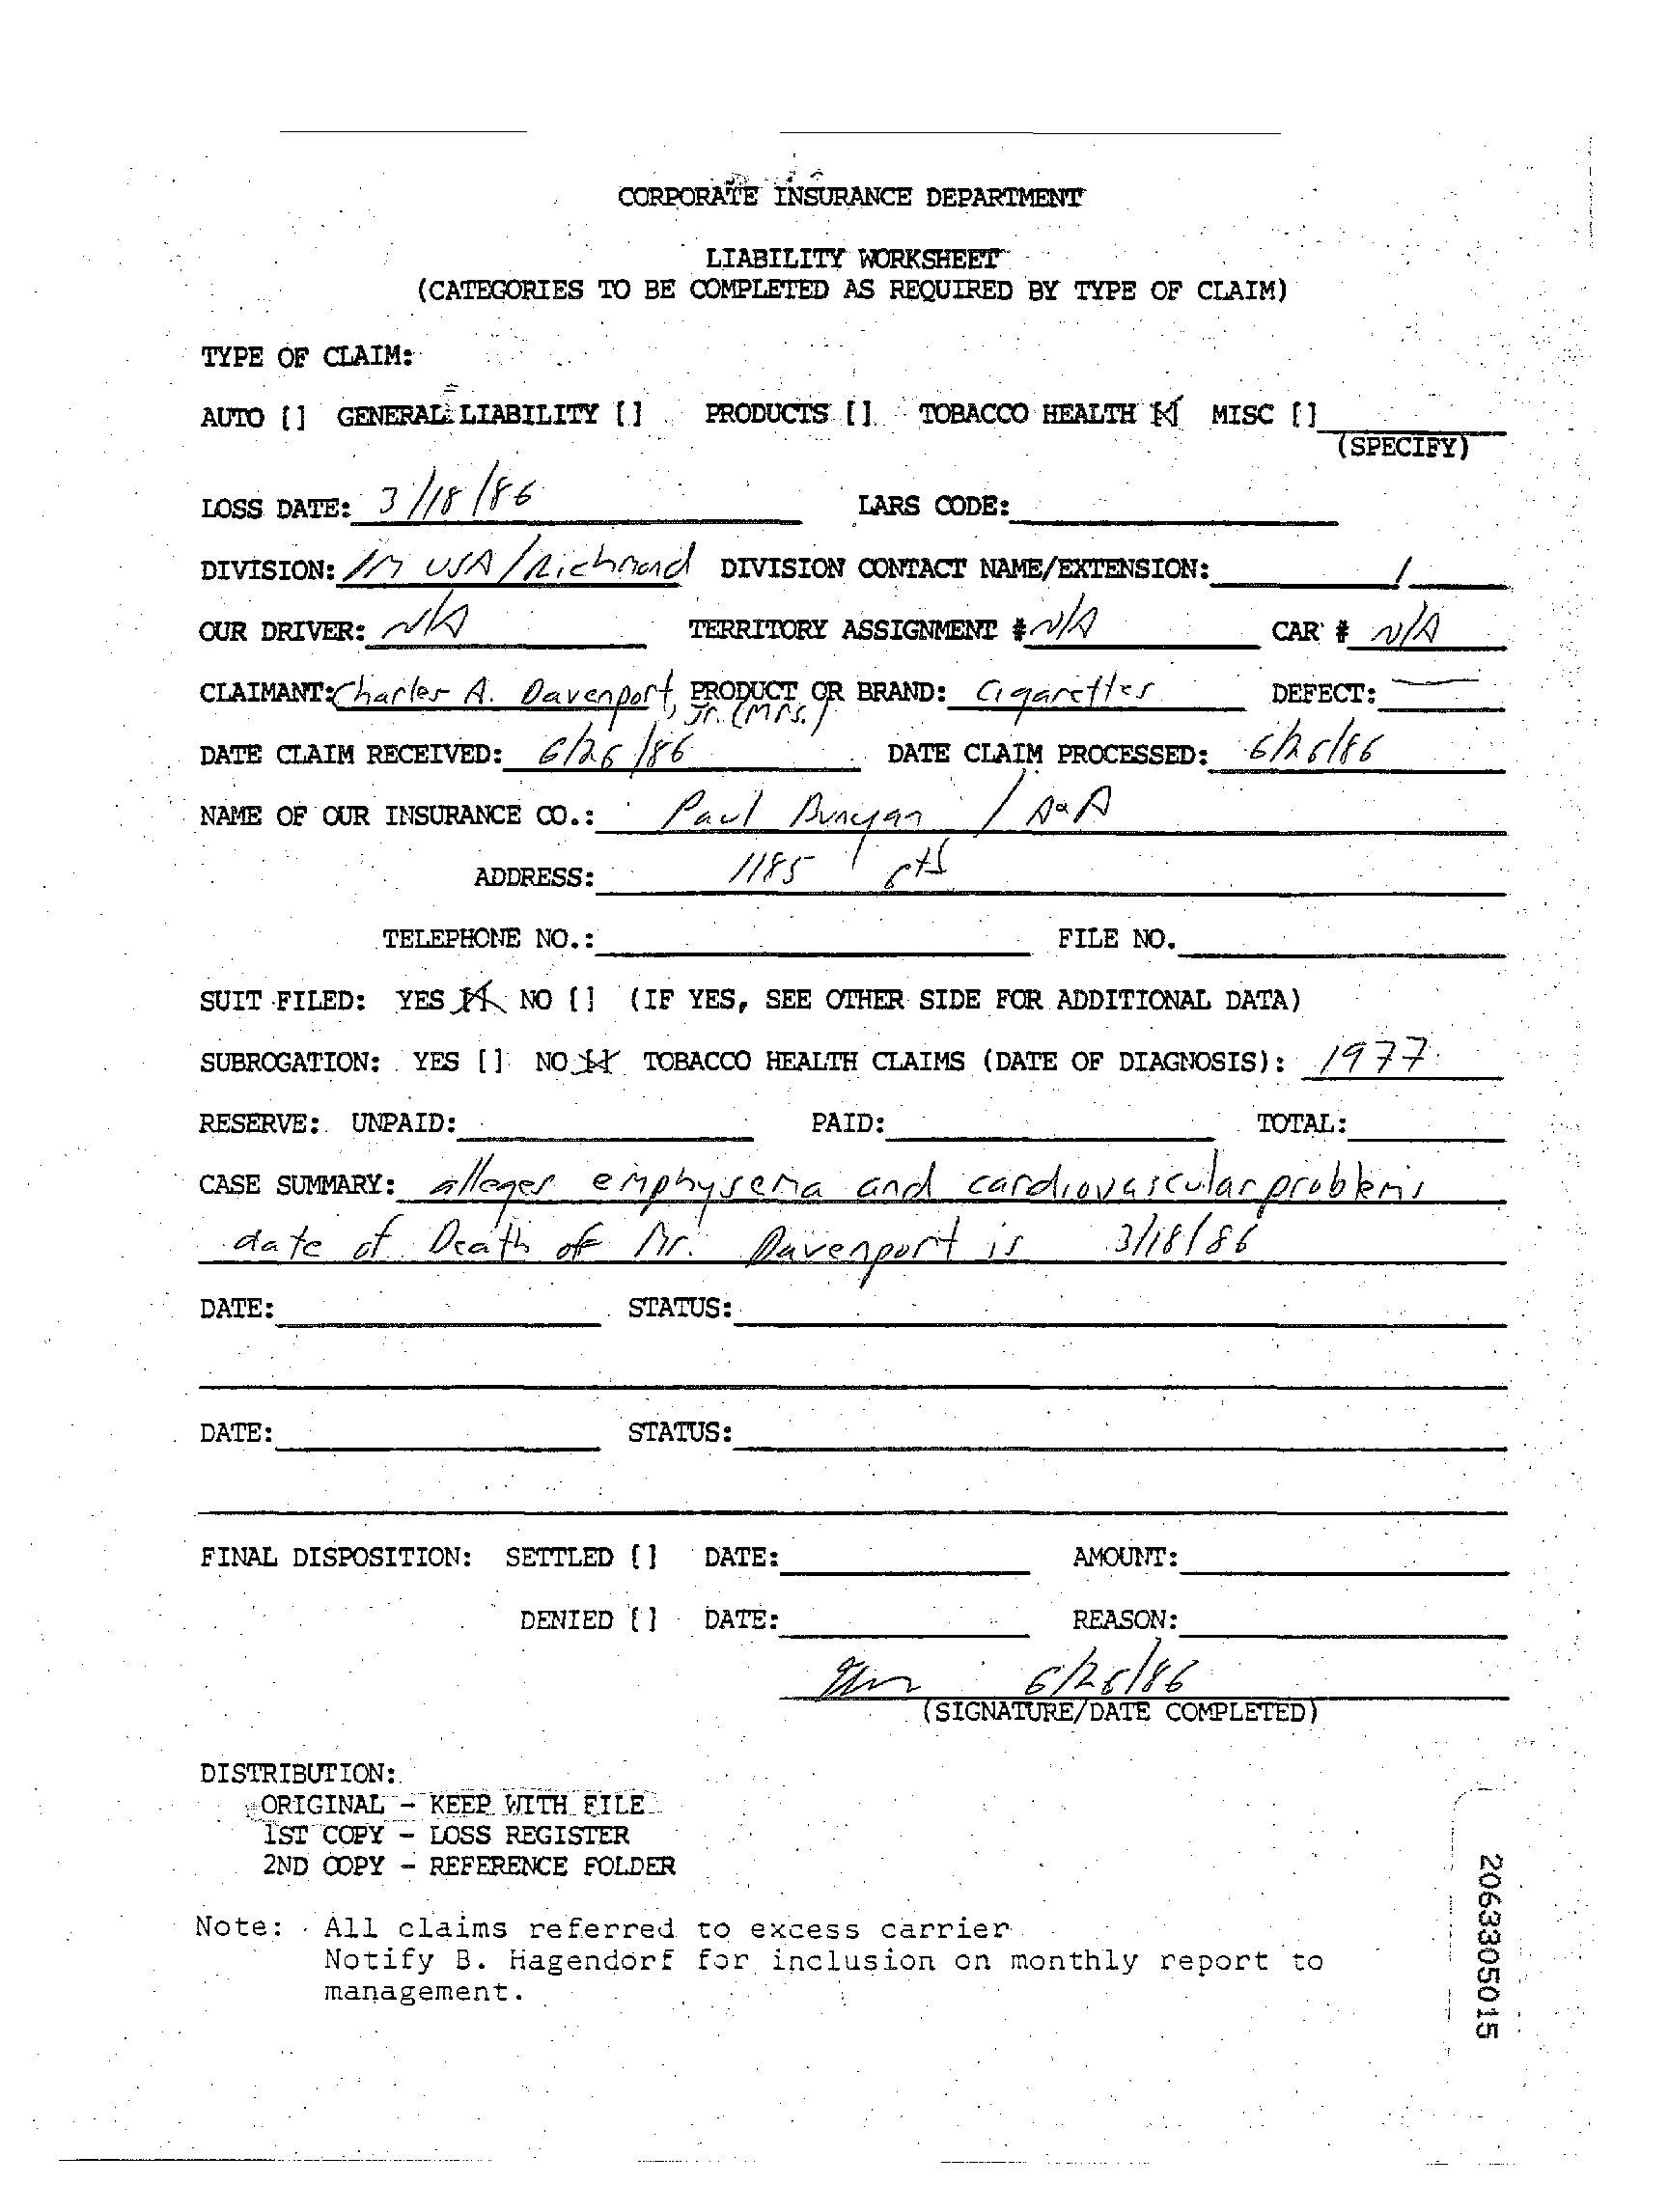 CORPORATE INSURANCE DEPARTMENT
LIABILITY WORKSHEET
(CATEGORIES TO BE COMPLETED AS REQUIRED BY TYPE OF CLAIM)
TYPE OF CLAIM:
AUTO [] GENERAL LIABILITY [] PRODUCTS [] TOBACCO HEALTH [X] MISC []
(SPECIFY)
LOSS DATE: 3/18/86 LARS CODE:
DIVISION: USA/Richmond DIVISION CONTACT NAME/EXTENSION: /
OUR DRIVER: N/A TERRITORY ASSIGNMENT # N/A CAR # N/A
CLAIMANT: Charles A. Davenport, PRODUCT OR BRAND: Cigarettes DEFECT: —
Jr. (Mrs.)
DATE CLAIM RECEIVED: 6/26/86 DATE CLAIM PROCESSED: 6/26/86
NAME OF OUR INSURANCE CO.: Paul Bunyan / A&A
ADDRESS: 1185 6th
TELEPHONE NO.: FILE NO.
SUIT FILED: YES [X] NO [] (IF YES, SEE OTHER SIDE FOR ADDITIONAL DATA)
SUBROGATION: YES [] NO [X] TOBACCO HEALTH CLAIMS (DATE OF DIAGNOSIS): 1977
RESERVE: UNPAID: PAID: TOTAL:
CASE SUMMARY: alleges emphysema and cardiovascular problems
date of Death of Mr. Davenport is 3/18/86
DATE: STATUS:
DATE: STATUS:
FINAL DISPOSITION: SETTLED [] DATE: AMOUNT:
DENIED [] DATE: REASON:
6/26/86
(SIGNATURE/DATE COMPLETED)
DISTRIBUTION:
ORIGINAL - KEEP WITH FILE
1ST COPY - LOSS REGISTER
2ND COPY - REFERENCE FOLDER
Note: All claims referred to excess carrier
Notify B. Hagendorf for inclusion on monthly report to
management.
2063305015